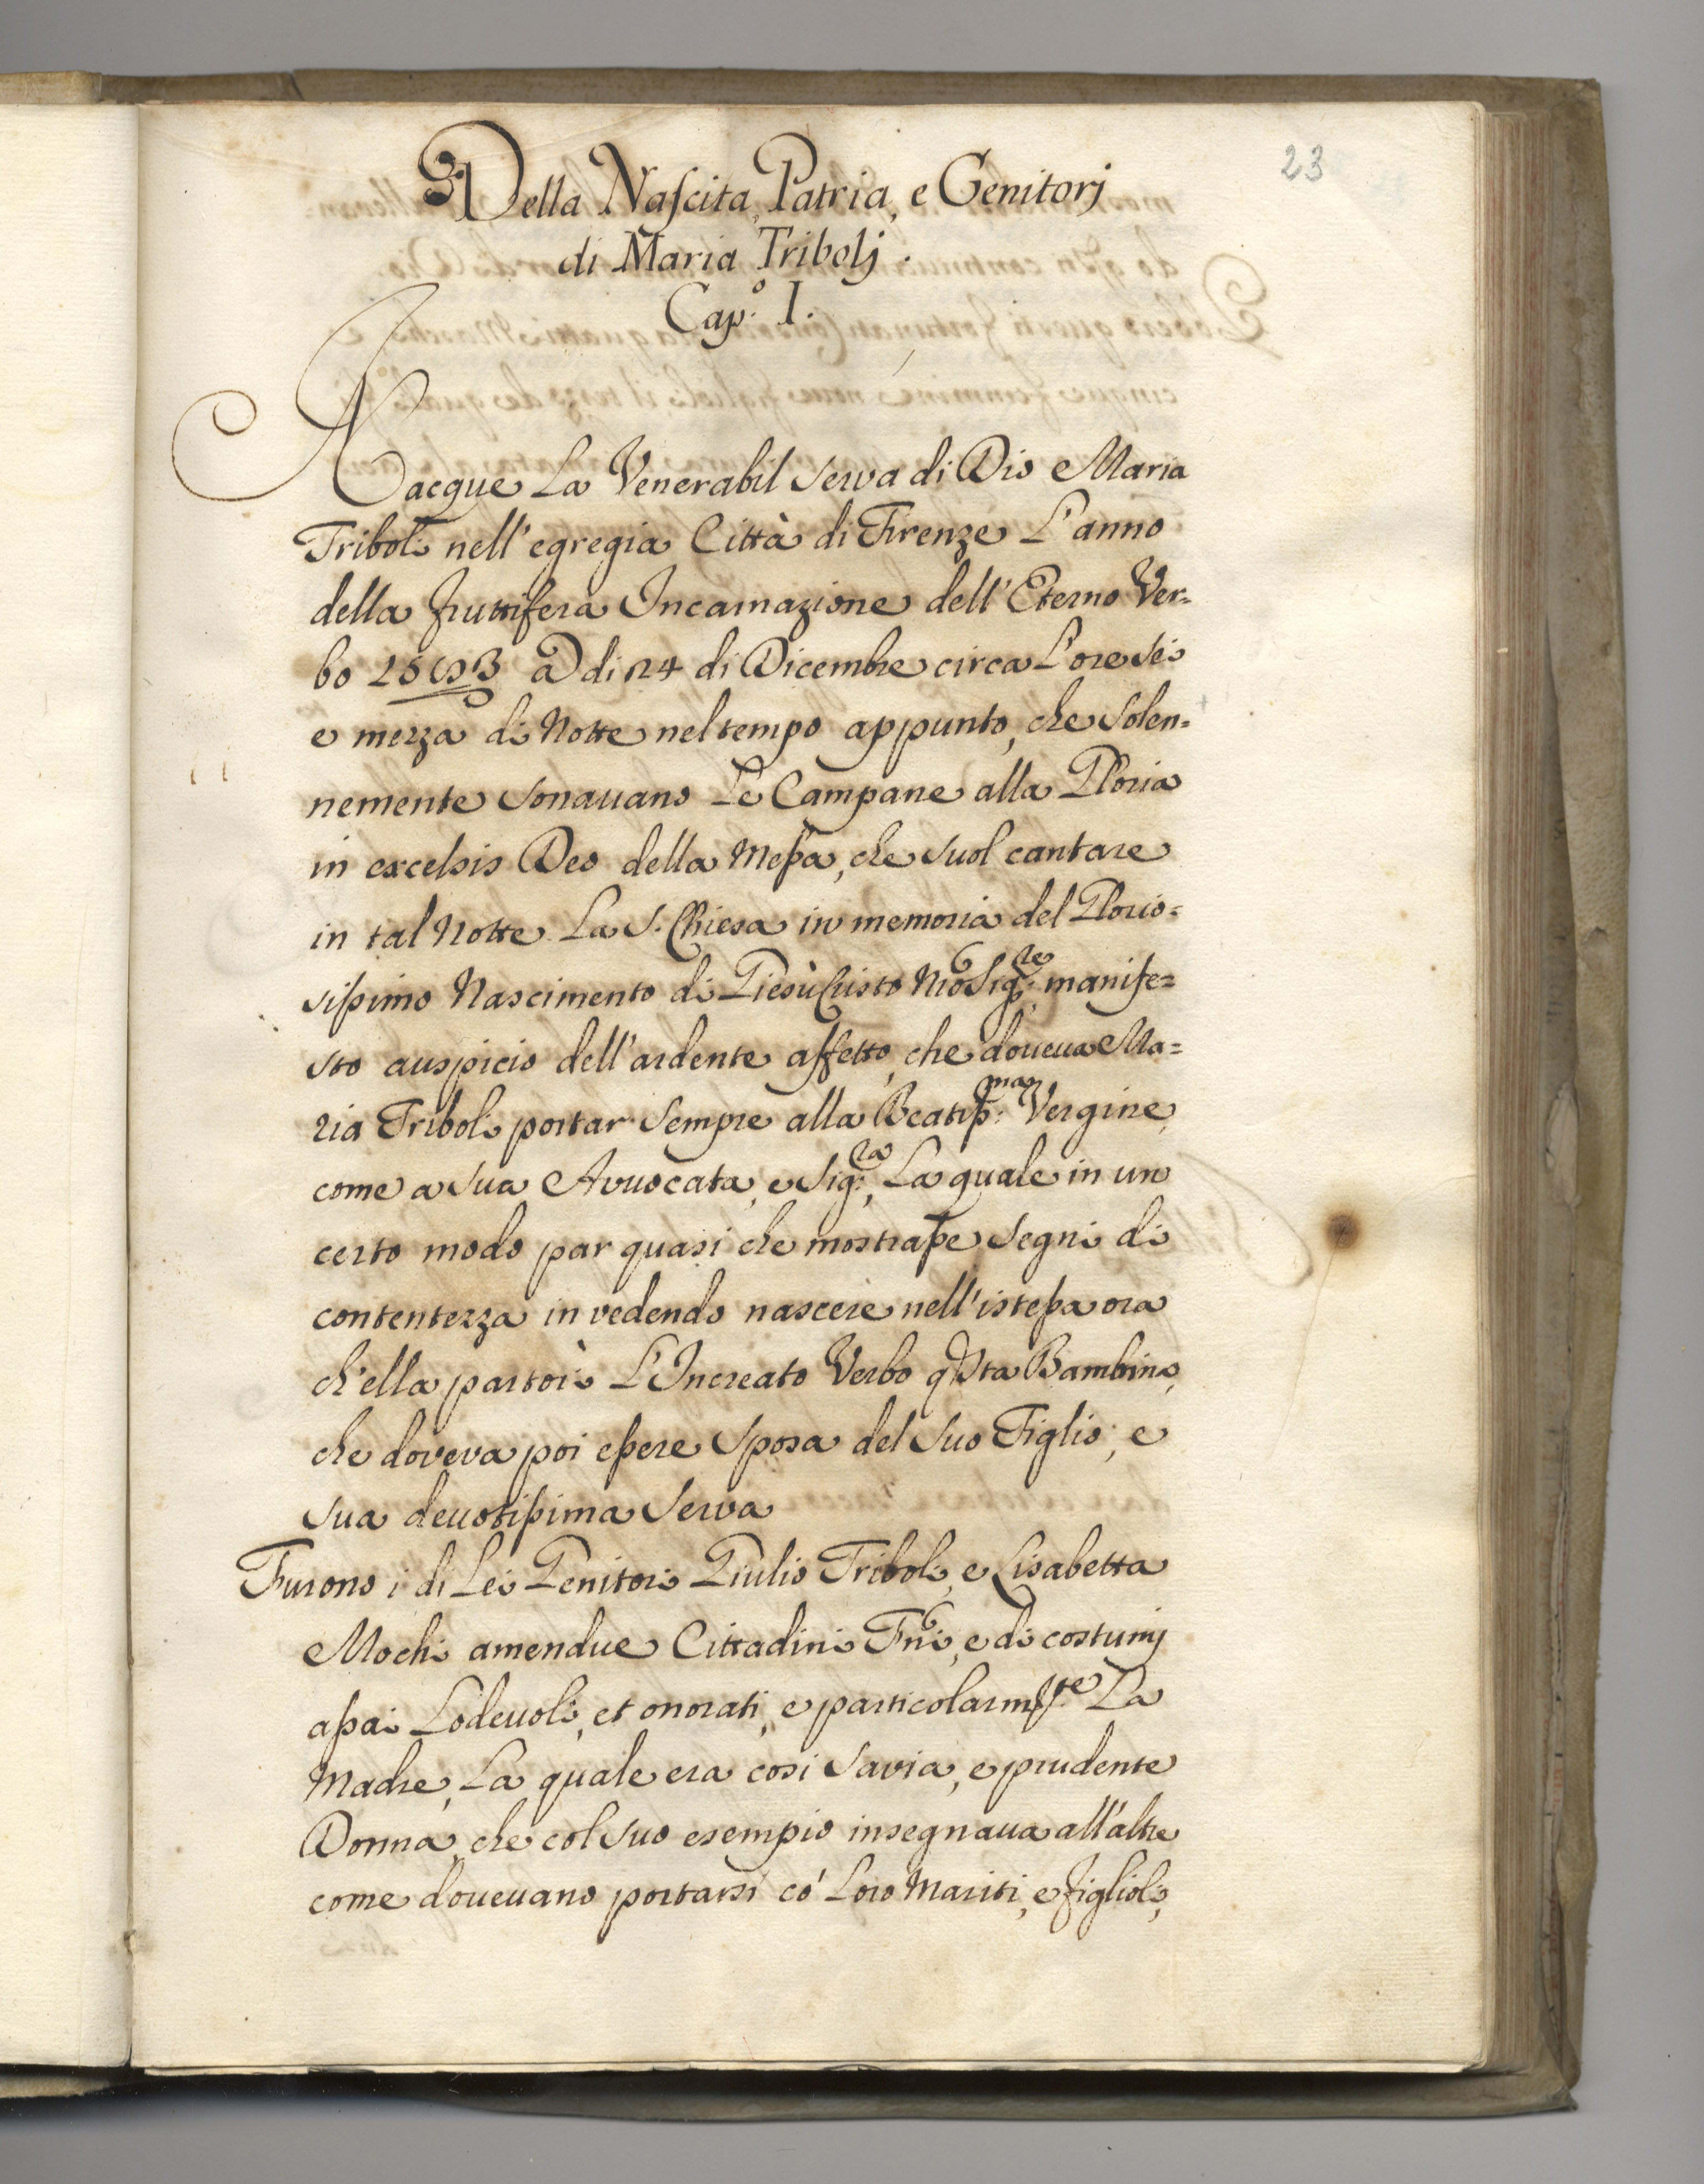 23
Della Nascita, Patria, e Genitorj
di Maria Tribolj.
Cap:º I.
Nacque La Venerabil Serva di Dio Maria
Triboli nell'egregia Città di Firenze L'anno
della fruttifera Incarnazione dell'Eterno Ver=
bo A di 24 di Dicembre circa L'ore sei
e mezza di Notte nel tempo appunto, che Solen=
nemente Sonauano Le Campane alla Gloria
in excelsis Deo della Messa, che suol cantare
in tal Notte La S. Chiesa in memoria del Glorio=
sissimo Nascimento di Giesù Cristo Nro Sig:re manife=
sto auspicio dell'ardente affetto, che doueua Ma=
ria Triboli portar Sempre alla Beatiss:ma Vergine,
come a sua Avuocata, e Sig:ra, La quale in un
certo modo par quasi che mostrasse Segni di
contentezza in vedendo nascere nell'istessa ora
ch'ella partorì L'Increato Verbo qsta Bambina,
che doveva poi essere Sposa del suo Figlio; e
sua deuotissima Serva
Furono i di Lei Genitori Giulio Triboli, e Lisabetta
Mochi amendue Cittadini Fni, e di costumj
assai Lodeuoli, et onorati, e particolarmte La
Madre, La quale era cosi savia, e prudente
Donna, che col suo esempio insegnaua all'altre
come doueuano portarsi co' Loro Mariti, e figlioli,